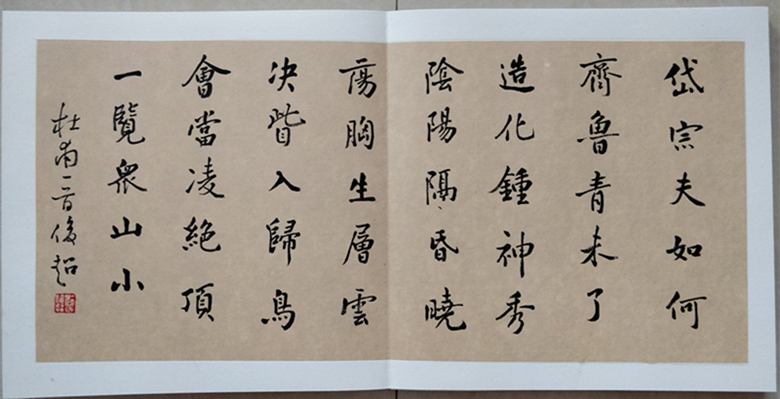 岱宗夫如何
齊魯青未了
造化鍾神秀
陰陽隔昏曉
蕩胸生層雲
決眥入歸鳥
會當凌絕頂
一覽眾山小
杜甫一首俊超